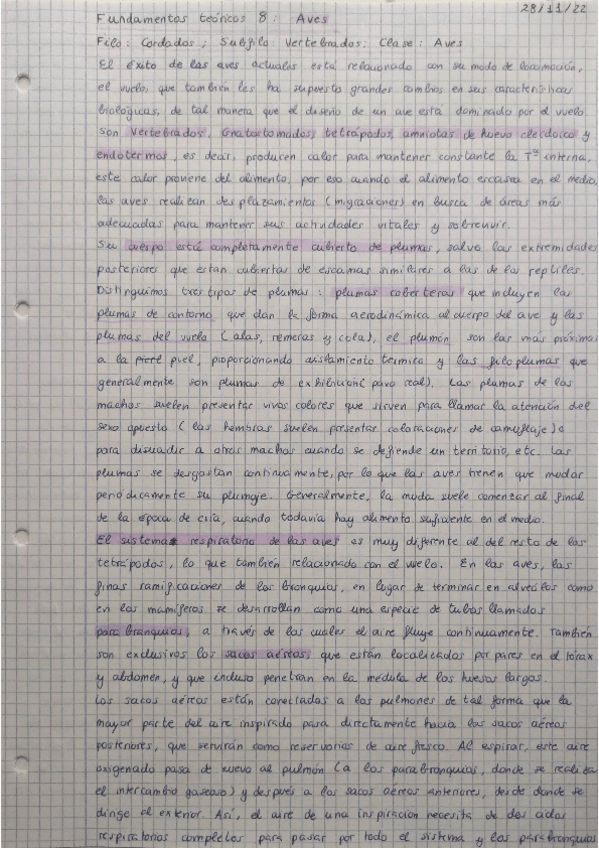 28/11/22
Fundamentos teóricos 8: Aves
Filo: Cordados; Subfilo: Vertebrados; Clase: Aves
El éxito de las aves actuales está relacionado con su modo de locomoción,
el vuelo, que también les ha supuesto grandes cambios en sus características
biológicas, de tal manera que el diseño de un ave está dominado por el vuelo.
Son vertebrados, gnatostomados, tetrápodos, amniotas de huevo cleidoico y
endotermos, es decir, producen calor para mantener constante la Tª interna,
este calor proviene del alimento, por eso cuando el alimento escasea en el medio,
las aves realizan desplazamientos (migraciones) en busca de áreas más
adecuadas para mantener sus actividades vitales y sobrevivir.
Su cuerpo está completamente cubierto de plumas, salvo las extremidades
posteriores que están cubiertas de escamas similares a las de los reptiles.
Distinguimos tres tipos de plumas: plumas coberteras que incluyen las
plumas de contorno, que dan la forma aerodinámica al cuerpo del ave y las
plumas del vuelo (alas, remeras y cola), el plumón son las más próximas
a la piel, proporcionando aislamiento térmico y las filoplumas que
generalmente son plumas de exhibición (pavo real). Las plumas de los
machos suelen presentar vivos colores que sirven para llamar la atención del
sexo opuesto (las hembras suelen presentar coloraciones de camuflaje) o
para disuadir a otros machos cuando se defiende un territorio, etc. Las
plumas se desgastan continuamente, por lo que las aves tienen que mudar
periódicamente su plumaje. Generalmente, la muda suele comenzar al final
de la época de cría, cuando todavía hay alimento suficiente en el medio.
El sistema respiratorio de las aves es muy diferente al del resto de los
tetrápodos, lo que también relacionado con el vuelo. En las aves, las
finas ramificaciones de los bronquios, en lugar de terminar en alveólos como
en los mamíferos se desarrollan como una especie de tubos llamados
parabronquios, a través de los cuales el aire fluye continuamente. También
son exclusivos los sacos aéreos, que están localizados por pares en el tórax
y abdomen, y que incluso penetran en la médula de los huesos largos.
Los sacos aéreos están conectados a los pulmones de tal forma que la
mayor parte del aire inspirado pasa directamente hacia los sacos aéreos
posteriores, que servirán como reservorios de aire fresco. Al espirar, este aire
oxigenado pasa de nuevo al pulmón (a los parabronquios, donde se realiza
el intercambio gaseoso) y después a los sacos aéreos anteriores, desde donde se
dirige al exterior. Así, el aire de una inspiración necesita de dos ciclos
respiratorios completos para pasar por todo el sistema y los parabronquios